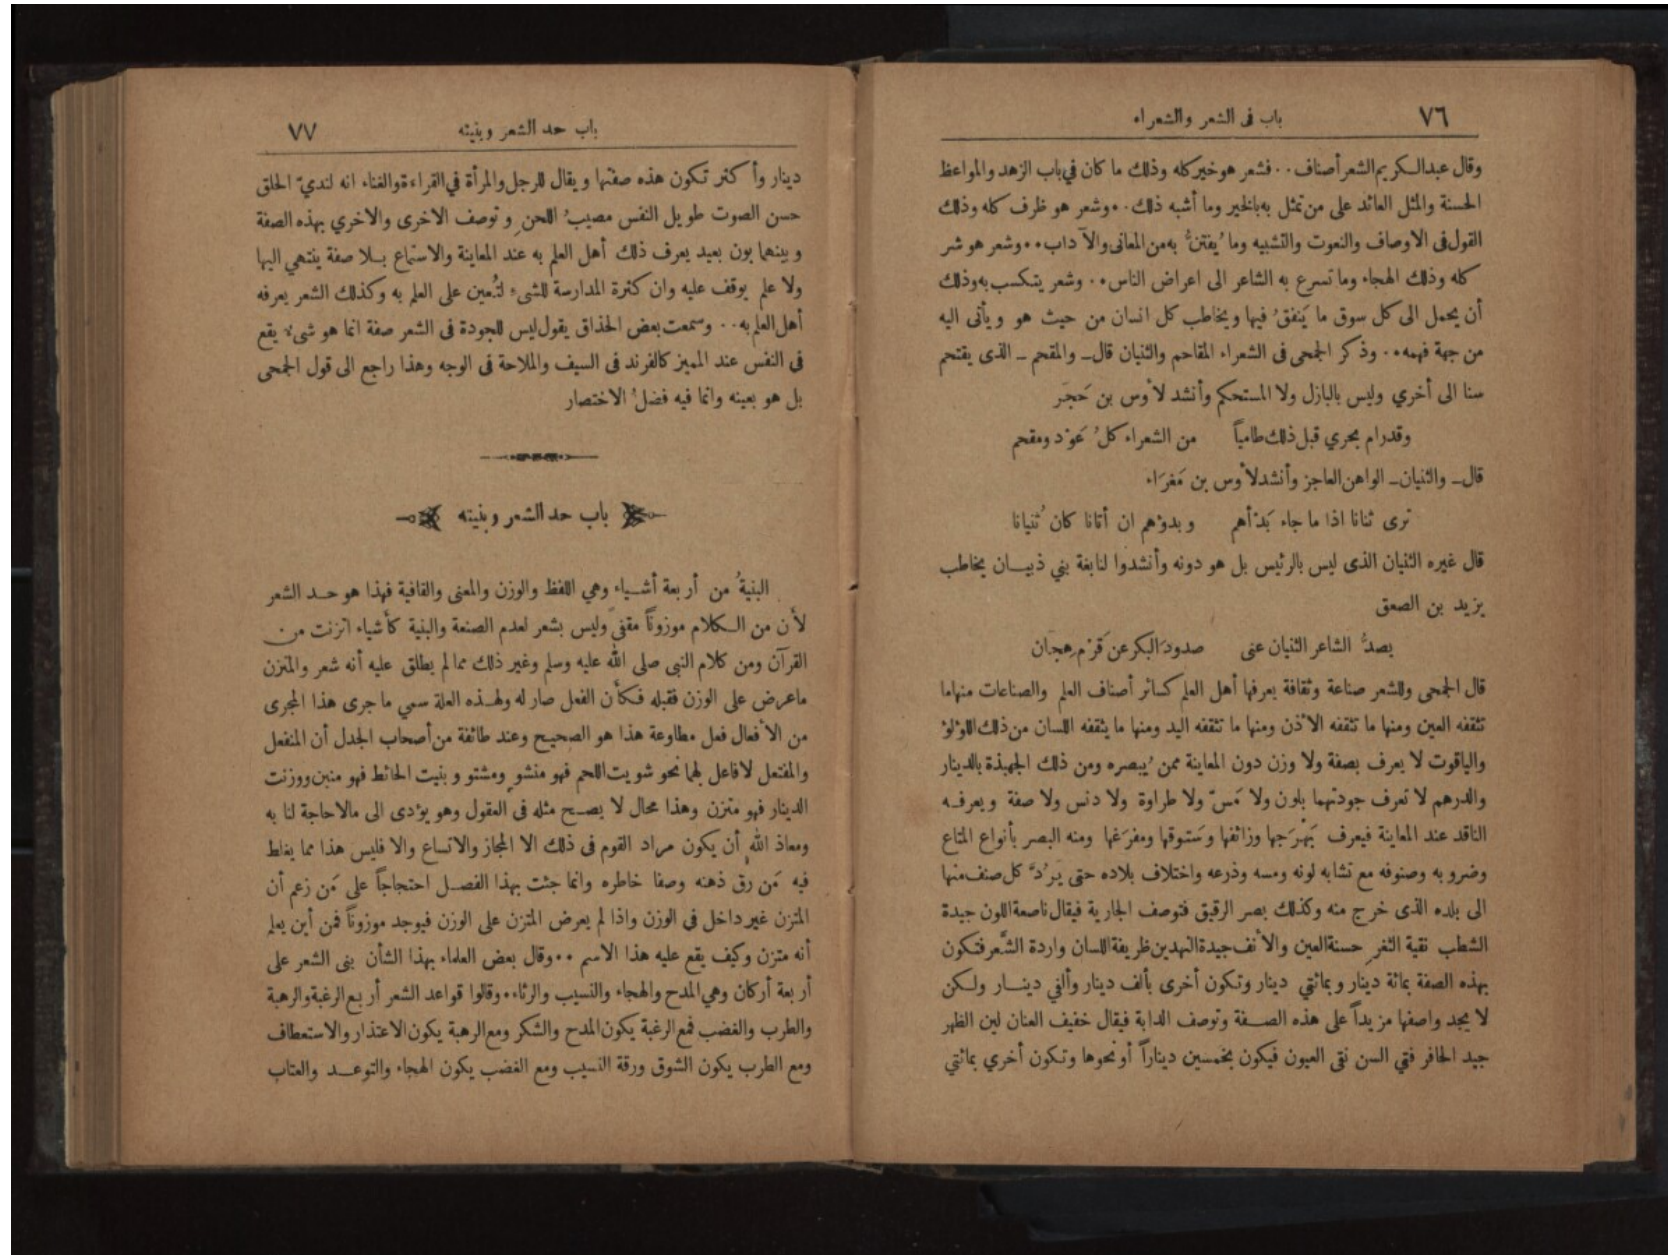 ٧٦
باب فى الشعر والشعراء
وقال عبدالكريم الشعر أصناف٠٠ فشعر هو خير كله وذلك ما كان في باب الزهد والمواعظ
الحسنة والمثل العائد على من تمثل به بالخير وما أشبه ذلك٠٠ وشعر هو ظرف كله وذلك
القول فى الاوصاف والنعوت والتشبيه وما يُفتنُّ به من المعانى والآداب٠٠ وشعر هو شر
كله وذلك الهجاء وما تسرع به الشاعر الى اعراض الناس٠٠ وشعر يتكسب به وذلك
أن يحمل الى كل سوق ما يَنفقُ فيها ويخاطب كل انسان من حيث هو ويأتى اليه
من جهة فهمه٠٠ وذكر الجمحى فى الشعراء المقاحم والثنيان قال ـ والمقحم ـ الذى يقتحم
سنا الى أخري وليس بالبازل ولا المستحكم وأنشد لأوس بن حَجَر
وقد رام بحري قبل ذلك طامياً من الشعراء كلُ عَوْد ومقحم
قال ـ والثنيان ـ الواهن العاجز وأنشد لأوس بن مَغرَاء
ترى ثنانا اذا ما جاء بَدْأهم وبدؤهم ان أتانا كان ثُنيانا
قال غيره الثنيان الذى ليس بالرئيس بل هو دونه وأنشدوا لنابغة بني ذبيـان يخاطب
يزيد بن الصعق
يصدُّ الشاعر الثنيان عنى صدودَ البكر عن قَرْم هِجَان
قال الجمحى وللشعر صناعة وثقافة يعرفها أهل العلم كسائر أصناف العلم والصناعات منها ما
تثقفه العين ومنها ما تثقفه الأذن ومنها ما تثقفه اليد ومنها ما يثقفه اللسان من ذلك اللؤلؤ
والياقوت لا يعرف بصفة ولا وزن دون المعاينة ممن يُبصره ومن ذلك الجهبذة بالدينار
والدرهم لا تعرف جودتهما بلون ولا مَسّ ولا طراوة ولا دنس ولا صفة ويعرفـه
الناقد عند المعاينة فيعرف بَهْرَجها وزائفها وسَتوقها ومفرَغها ومنه البصر بأنواع المتاع
وضروبه وصنوفه مع تشابه لونه ومسه وذرعه واختلاف بلاده حتى يَرُدَّ كل صنف منها
الى بلده الذى خرج منه وكذلك بصر الرقيق فتوصف الجارية فيقال ناصعة اللون جيدة
الشطب نقية الثغر حسنة العين والأنف جيدة النهدين ظريفة اللسان واردة الشَّعر فتكون
بهذه الصفة بمائة دينار وبمائتي دينار وتكون أخرى بألف دينار وألفي دينـار ولـكن
لا يجد واصفها مزيداً على هذه الصـفة وتوصف الدابة فيقال خفيف العنان لين الظهر
جيد الحافر فتي السن نقى العيون فيكون بخمسين ديناراً أو نحوها وتكون أخري بمائتي
باب حد الشعر وبنيته
٧٧
دينار وأكثر تكون هذه صفتها ويقال للرجل والمرأة في القراءة والغناء انه لنديّ الحلق
حسن الصوت طويل النفس مصيبُ اللحن وتوصف الاخرى والاخري بهذه الصفة
وبينهما بون بعيد يعرف ذلك أهل العلم به عند المعاينة والاستماع بـلا صفة ينتهي اليها
ولا علم يوقف عليه وان كثرة المدارسة للشىء لتُعين على العلم به وكذلك الشعر يعرفه
أهل العلم به٠٠ وسمعت بعض الحذاق يقول ليس للجودة فى الشعر صفة انما هو شىء يقع
فى النفس عند المميز كالفرند فى السيف والملاحة فى الوجه وهذا راجع الى قول الجمحى
بل هو بعينه وانما فيه فضلُ الاختصار
باب حد الشعر وبنيته
البنيةُ من أربعة أشـياء وهي اللفظ والوزن والمعنى والقافية فهذا هو حـد الشعر
لأن من الـكلام موزوناً مقفىً وليس بشعر لعدم الصنعة والبنية كأشياء اتزنت من
القرآن ومن كلام النبى صلى الله عليه وسلم وغير ذلك مما لم يطلق عليه أنه شعر والمتزن
ما عرض على الوزن فقبله فكأن الفعل صار له ولهـذه العلة سمي ما جرى هذا المجرى
من الأفعال فعل مطاوعة هذا هو الصحيح وعند طائفة من أصحاب الجدل أن المنفعل
والمفتعل لا فاعل لهما نحو شويت اللحم فهو منشوٍ ومشتو وبنيت الحائط فهو منبن ووزنت
الدينار فهو متزن وهذا محال لا يصـح مثله فى العقول وهو يؤدى الى مالا حاجة لنا به
ومعاذ الله أن يكون مراد القوم فى ذلك الا المجاز والاتساع والا فليس هذا مما يغلط
فيه مَن رق ذهنه وصفا خاطره وانما جئت بهذا الفصـل احتجاجاً على مَن زعم أن
المتزن غير داخل في الوزن واذا لم يعرض المتزن على الوزن فيوجد موزوناً فمن أين يعلم
أنه متزن وكيف يقع عليه هذا الاسم ٠٠ وقال بعض العلماء بهذا الشأن بنى الشعر على
أربعة أركان وهي المدح والهجاء والنسيب والرثاء٠٠ وقالوا قواعد الشعر أربع الرغبة والرهبة
والطرب والغضب فمع الرغبة يكون المدح والشكر ومع الرهبة يكون الاعتذار والاستعطاف
ومع الطرب يكون الشوق ورقة النسيب ومع الغضب يكون الهجاء والتوعـد والعتاب